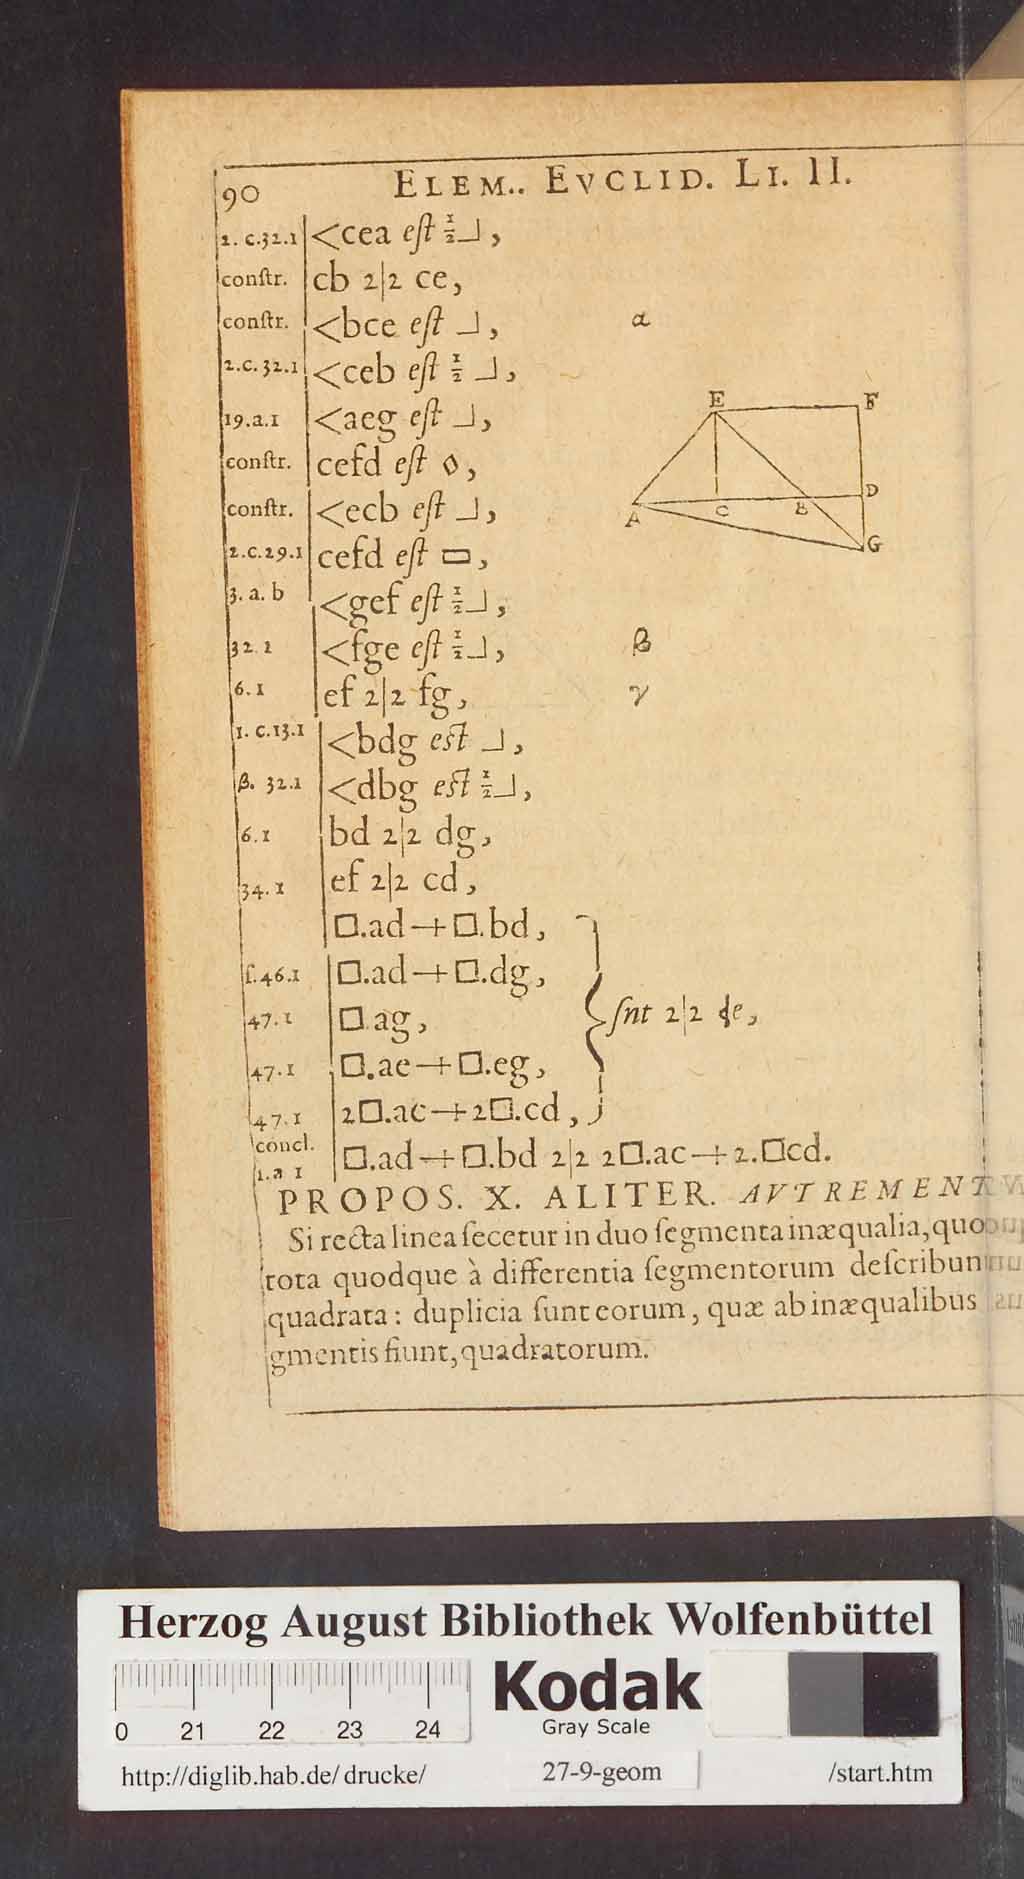 90 ELEM.. EVCLID. LI. II.
2. c.32.1 <cea eſt ½⅃,
conſtr. cb 2|2 ce,
conſtr. <bce eſt ⅃, α
2.c.32.1 <ceb eſt ½ ⅃,
19.a.1 <aeg eſt ⅃,
conſtr. cefd eſt ◊,
conſtr. <ecb eſt ⅃,
2.c.29.1 cefd eſt ▭,
3. a. b <gef eſt ½⅃,
32.1 <fge eſt ½⅃, β
6.1 ef 2|2 fg, γ
1. c.13.1 <bdg est ⅃,
β. 32.1 <dbg est ½⅃,
6.1 bd 2|2 dg,
34.1 ef 2|2 cd,
□.ad+□.bd,
ſ.46.1 □.ad+□.dg,
47.1 □.ag,
ſnt 2|2 de,
47.1 □.ae+□.eg,
47.1 2□.ac+2□.cd,
concl.
1.a 1 □.ad+□.bd 2|2 2□.ac+2.□cd.
E F
A C B D
G
PROPOS. X. ALITER. AVTREMENT
Si recta linea ſecetur in duo ſegmenta inæqualia, quo
tota quodque à differentia ſegmentorum deſcribun
quadrata: duplicia ſunt eorum, quæ ab inæqualibus
gmentis fiunt, quadratorum.
Herzog August Bibliothek Wolfenbüttel
0 21 22 23 24
Kodak
Gray Scale
http://diglib.hab.de/drucke/ 27-9-geom /start.htm